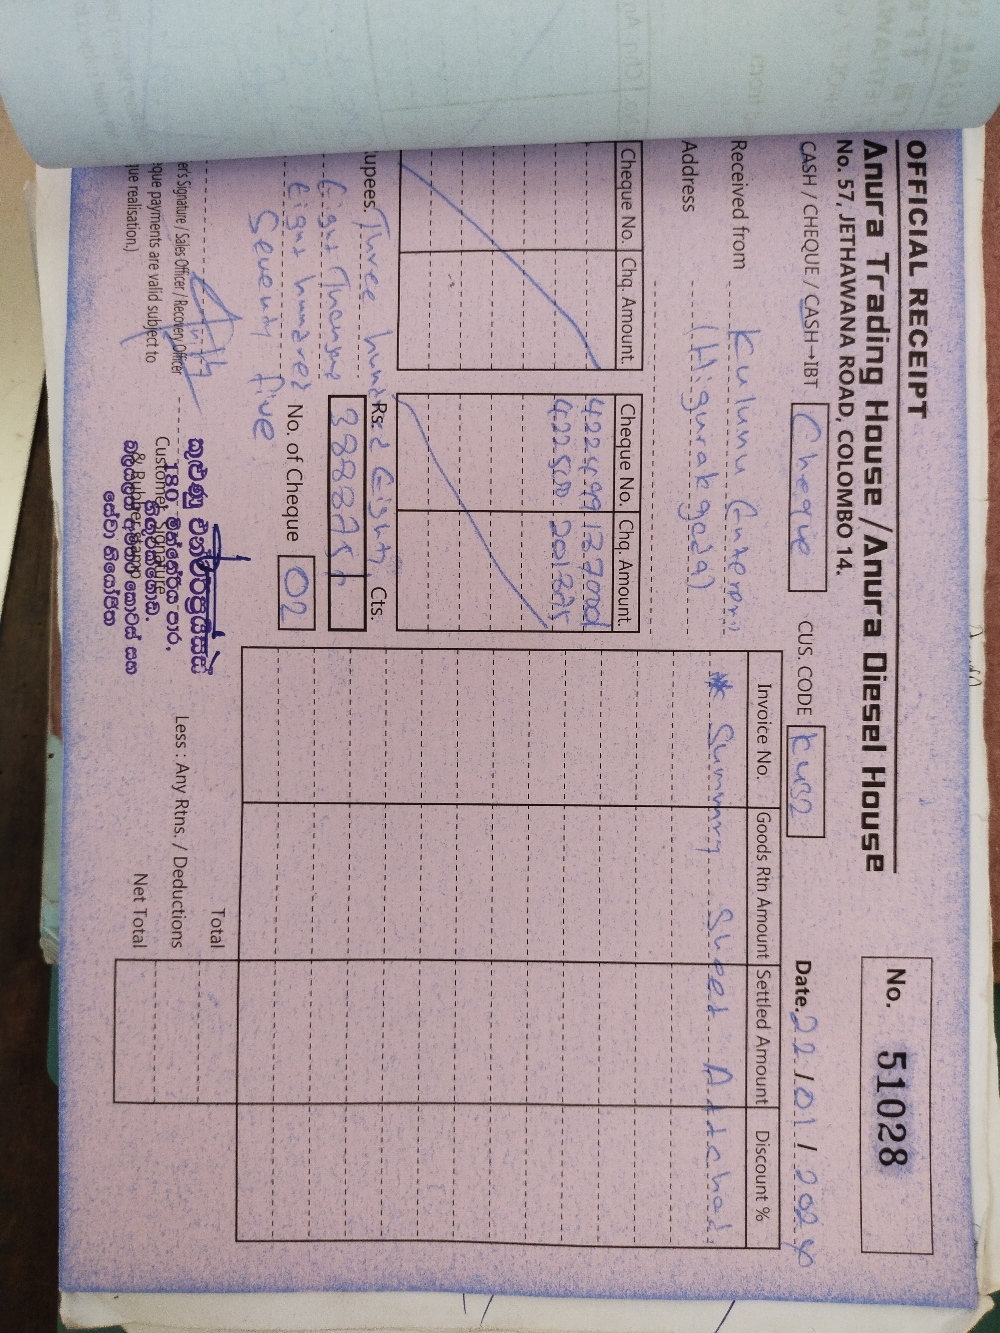 OFFICIAL RECEIPT
Anura Trading House / Anura Diesel House
No. 57, JETHAWANA ROAD, COLOMBO 14.
No. 51028
CASH / CHEQUE / CASH→IBT Cheque CUS. CODE Date. 22 / 01 / 2024
Received from Kulunu
Address (Higurakgoda)
Cheque No. Chq. Amount.
Cheque No. Chq. Amount.
422499 137000
422500
Invoice No. Goods Rtn Amount Settled Amount Discount %
* Summry Sheet Attched.
upees. Three hund
red Eighty
Eight Thousand
Eight hundred
Seventy Five
Rs. Cts.
388875
No. of Cheque 02
er's Signature / Sales Officer / Recovery Officer
que payments are valid subject to
que realisation.)
Customer Signature
& Rubber Stamp
180,
Total
Less : Any Rtns. / Deductions
Net Total